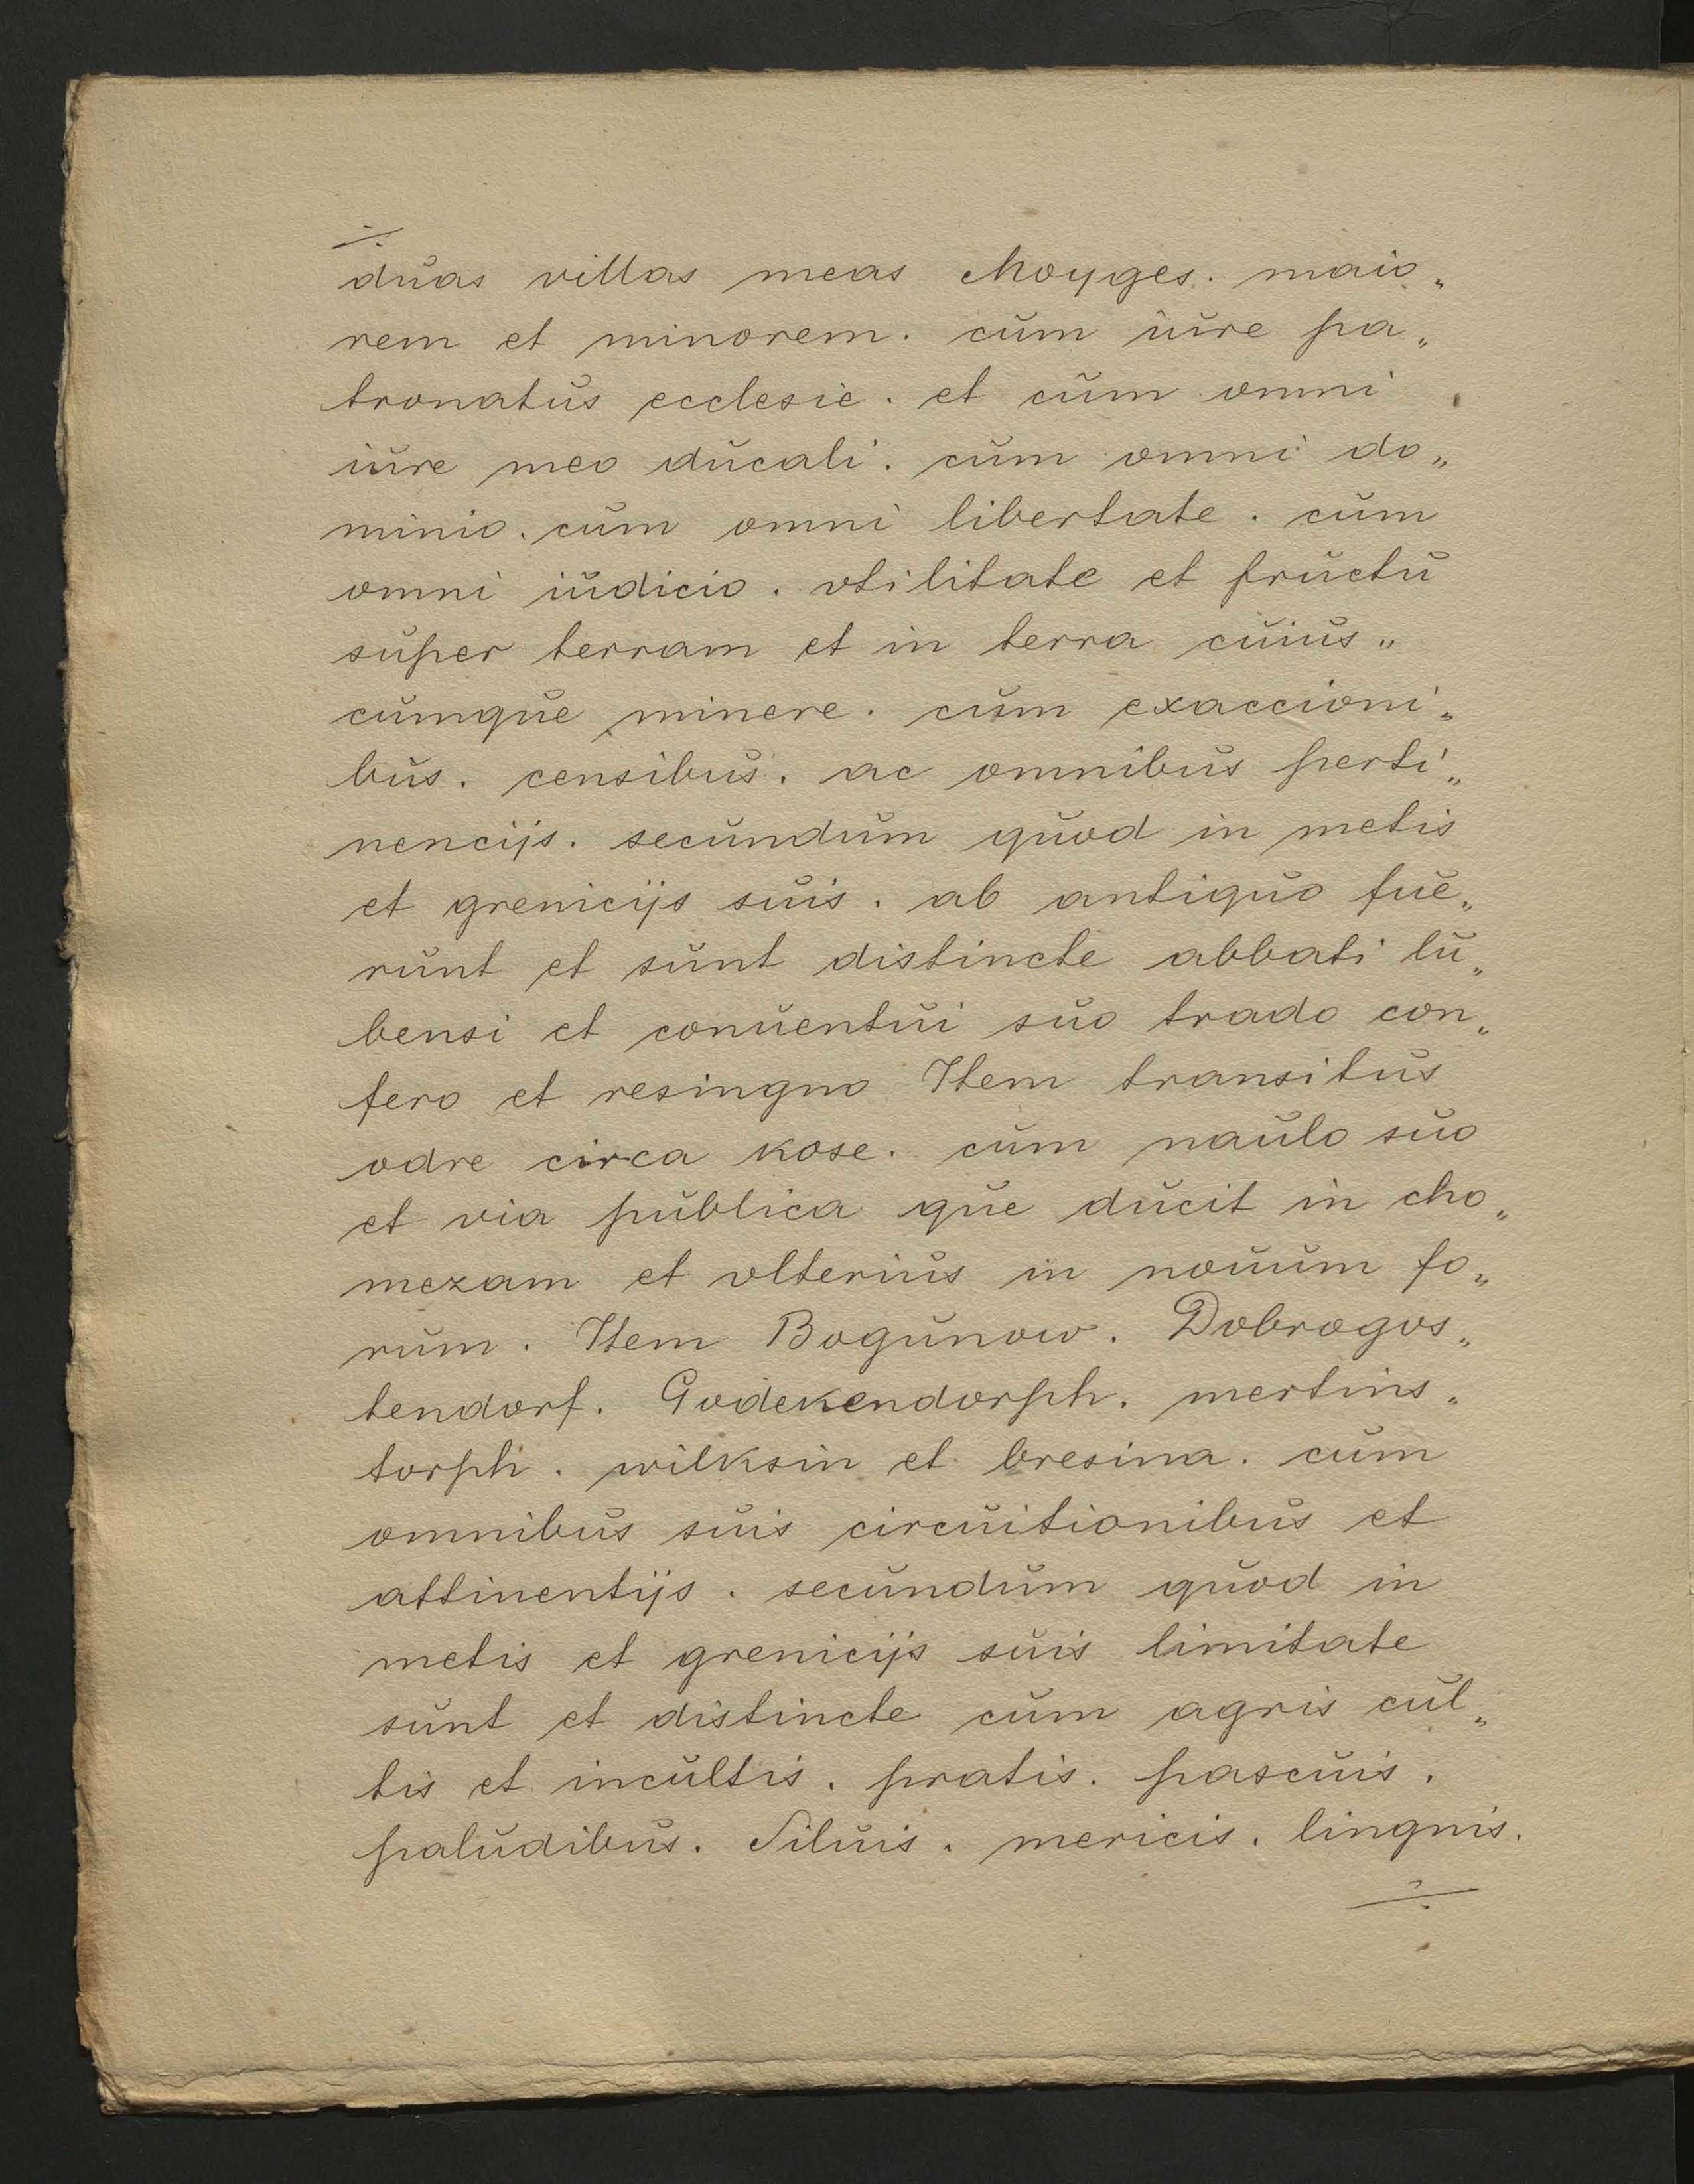 ÷
duas villas meas Moyges. maio„
rem et minorem. cum iure pa„
tronatus ecclesie. et cum omni
iure meo ducali. cum omni do„
minio. cum omni libertate. cum
omni iudicio. vtilitate et fructu
super terram et in terra cuius„
cumque minere. cum exaccioni„
bus. censibus. ac omnibus perti„
nencijs. secundum quod in metis
et grenicijs suis. ab antiquo fue„
runt et sunt distincte abbati lu„
bensi et conuentui suo trado con„
fero et resingno Item transitus
odre circa kose. cum naulo suo
et via publica que ducit in cho„
mezam et vlterius in nouum fo„
rum. Item Bogunow. Dobrogos„
tendorf. Godekendorph. mertins„
torph. wilksin et bresina. cum
omnibus suis circuitionibus et
attinentijs. secundum quod in
metis et grenicijs suis limitate
sunt et distincte cum agris cul„
tis et incultis. pratis. pascuis.
paludibus. Siluis. mericis. lingnis.
÷